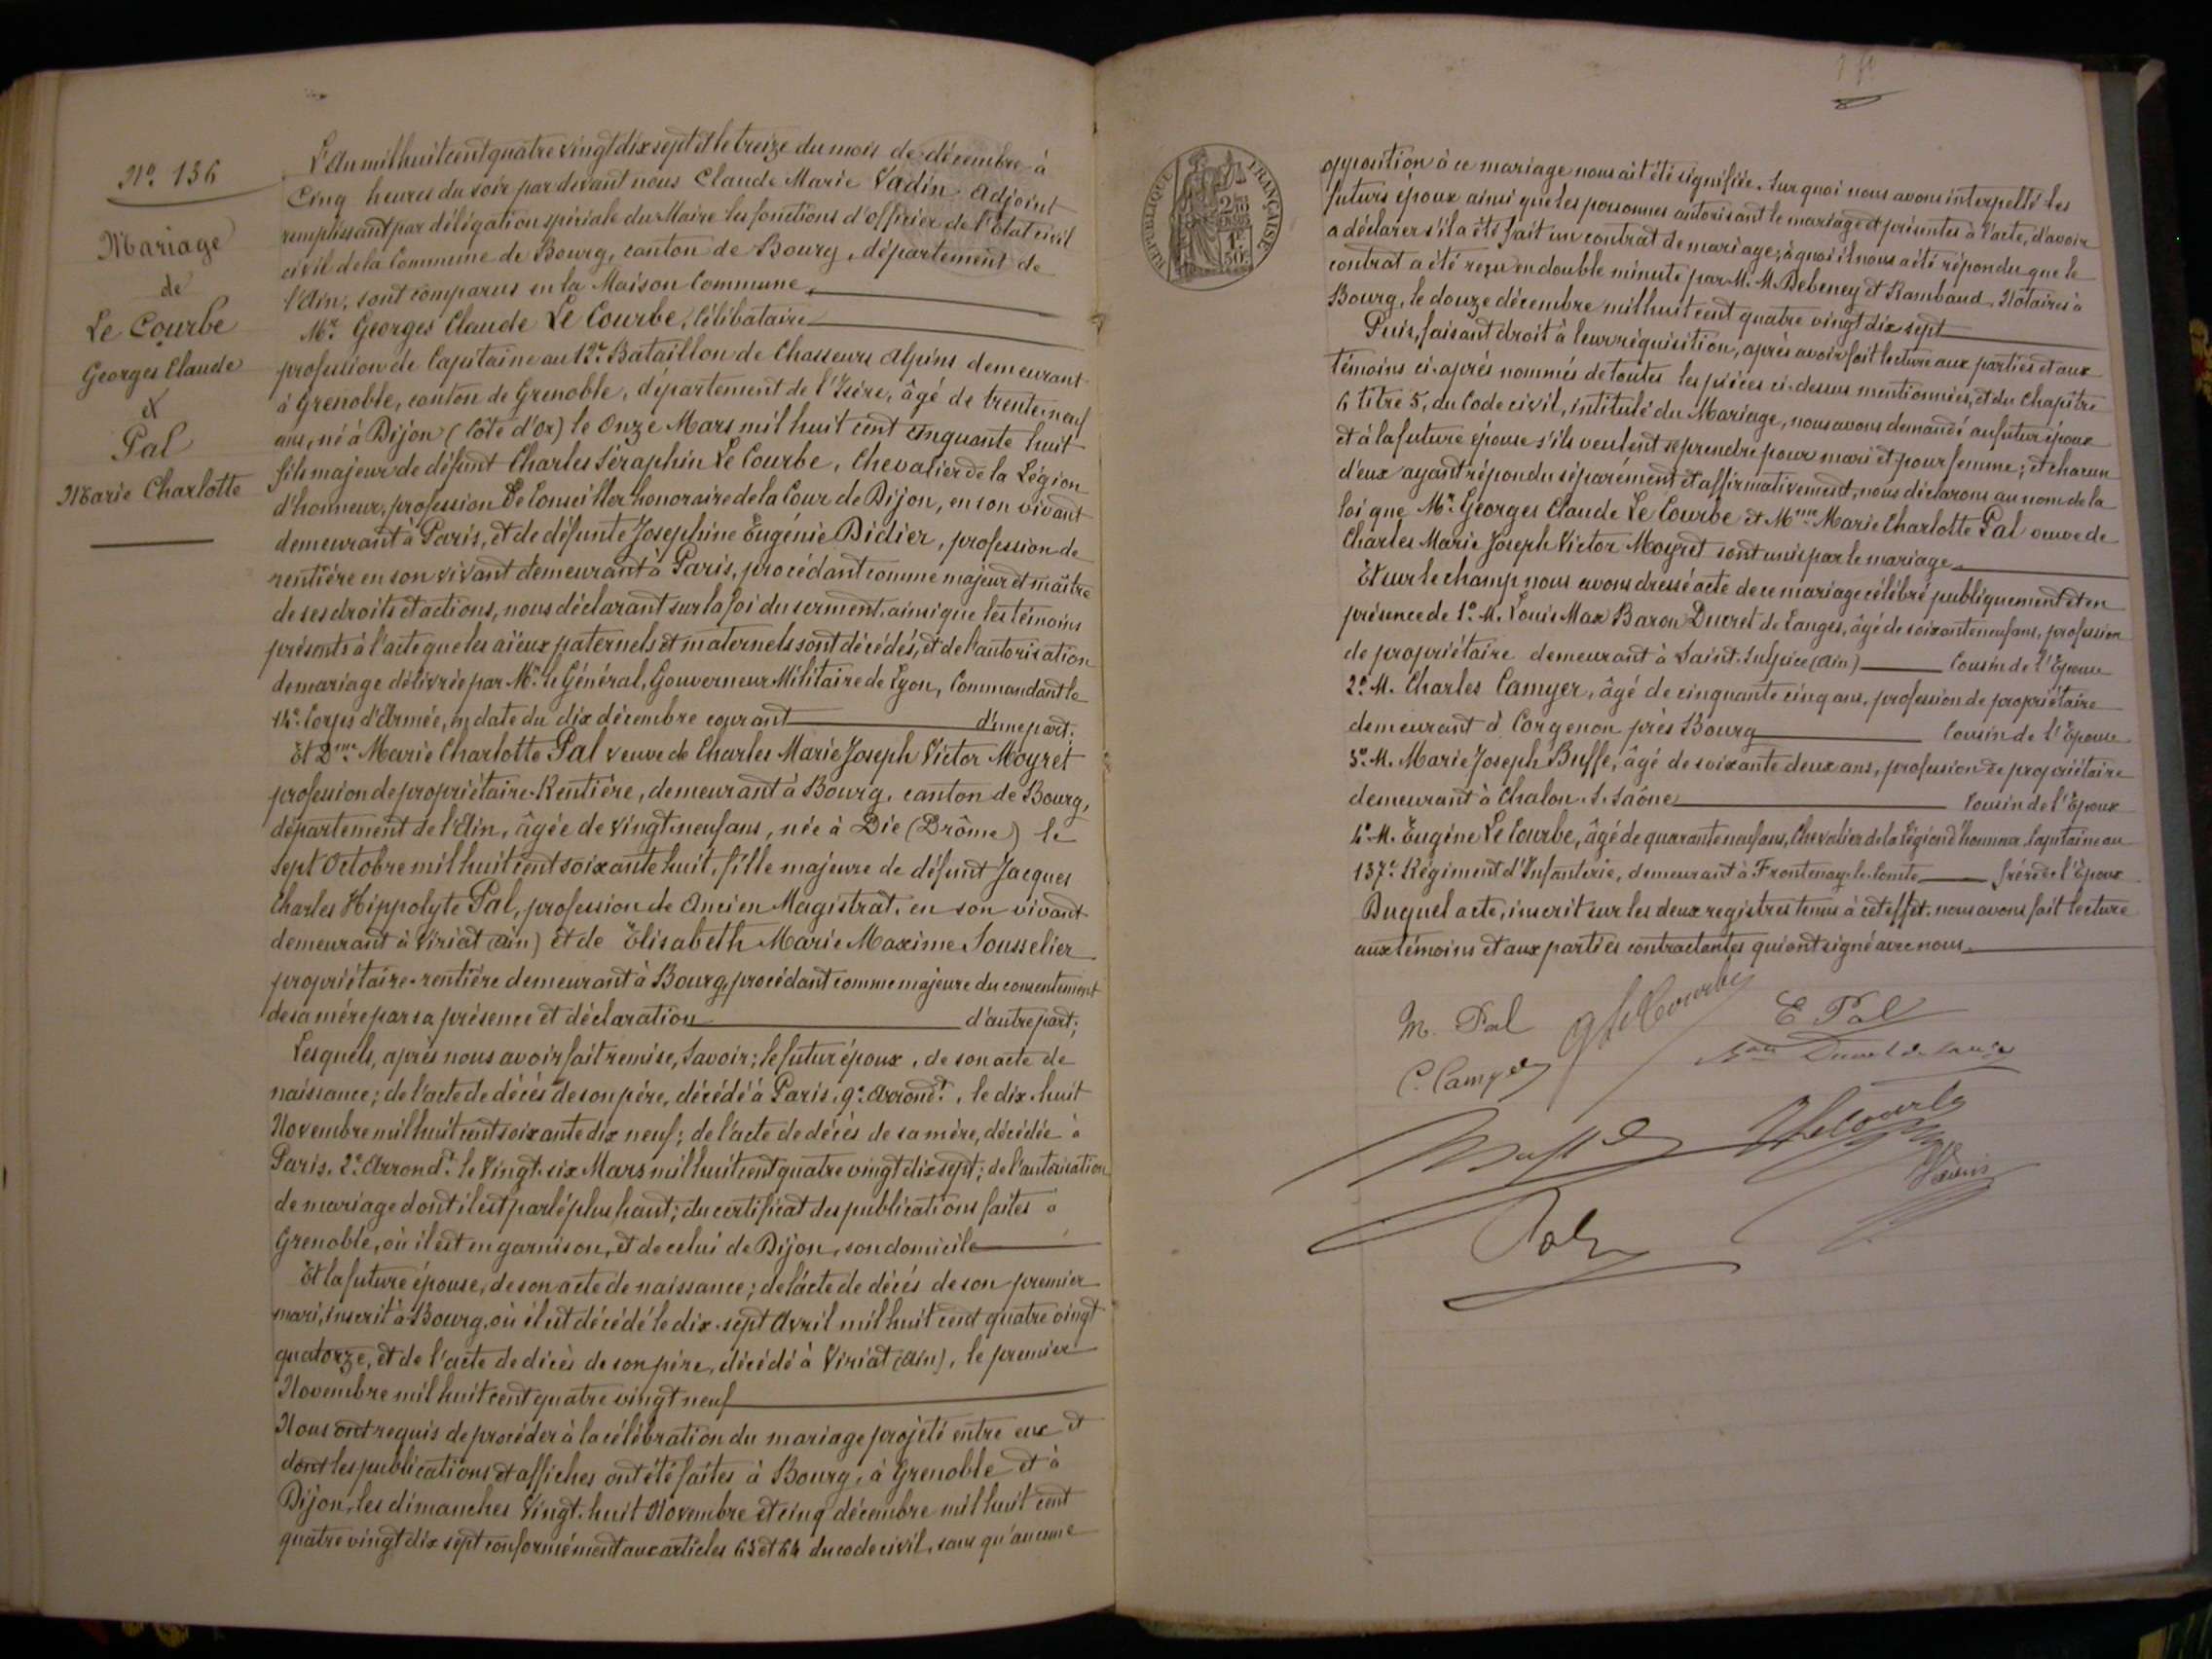 Nº 136
Mariage
de
Le Courbe
Georges Claude
et
Pal
Marie Charlotte
L'An mil huit cent quatre vingt dix sept et le treize du mois de décembre à
Cinq heures du soir par devant nous Claude Marie Vadin Adjoint
remplissant par délégation spéciale du Maire les fonctions d'officier de l'Etat civil
civil de la Commune de Bourg, canton de Bourg, département de
l'Ain, sont comparus en la Maison Commune,
Mr. Georges Claude Le Courbe, Célibataire
profession de Capitaine au 12e Bataillon de Chasseurs Alpins demeurant
à Grenoble, canton de Grenoble, département de l'Isère, âgé de trente-neuf
ans, né à Dijon (Côte d'Or) le Onze Mars mil huit cent cinquante huit
fils majeur de défunt Charles Séraphin Le Courbe, Chevalier de la Légion
d'honneur, profession de Conseiller honoraire de la Cour de Dijon, en son vivant
demeurant à Paris, et de défunte Josephine Eugénie Didier, profession de
rentière en son vivant demeurant à Paris, procédant comme majeur et maître
de ses droits et actions, nous déclarant sur la foi du serment, ainsi que les témoins
présents à l'acte que les aïeux paternels et maternels sont décédés, et de l'autorisation
de mariage délivrée par Mr. le Général, Gouverneur Militaire de Lyon, Commandant le
14e Corps d'Armée, en date du dix décembre courant d'une part;
Et Dme Marie Charlotte Pal veuve de Charles Marie Joseph Victor Moyret
profession de propriétaire-Rentière, demeurant à Bourg, canton de Bourg,
département de l'Ain, âgée de vingt-neuf ans, née à Die (Drôme) le
sept Octobre mil huit cent soixante huit, fille majeure de défunt Jacques
Charles Hippolyte Pal, profession de Ancien Magistrat, en son vivant
demeurant à Viriat (Ain) et de Elisabeth Marie Maxime Sousselier
propriétaire-rentière demeurant à Bourg, procédant comme majeure du consentement
de sa mère par sa présence et déclaration d'autre part;
Lesquels, après nous avoir fait remise, Savoir; le futur époux, de son acte de
naissance; de l'acte de décès de son père, décédé à Paris, 9e Arrondt, le dix-huit
Novembre mil huit cent soixante dix neuf; de l'acte de décès de sa mère, décédée à
Paris, 2e Arrondt le Vingt-six Mars mil huit cent quatre vingt dix sept; de l'autorisation
de mariage dont il est parlé plus haut; du certificat des publications faites à
Grenoble, où il est en garnison, et de celui de Dijon, son domicile
Et la future épouse, de son acte de naissance; de l'acte de décès de son premier
mari, inscrit à Bourg, où il est décédé le dix-sept Avril mil huit cent quatre vingt
quatorze, et de l'acte de décès de son père, décédé à Viriat (Ain), le premier
Novembre mil huit cent quatre vingt neuf
Nous ont requis de procéder à la célébration du mariage projeté entre eux et
dont les publications et affiches ont été faites à Bourg, à Grenoble et à
Dijon, les dimanches Vingt-huit Novembre et cinq décembre mil huit cent
quatre vingt dix sept conformément aux articles 63 et 64 du code civil, sans qu'aucune
REPUBLIQUE FRANÇAISE
opposition à ce mariage nous ait été signifiée. Sur quoi nous avons interpellé les
futurs époux ainsi que les personnes autorisant le mariage et présentes à l'acte, d'avoir
a déclarer s'il a été fait un contrat de mariage; à quoi il nous a été répondu que le
contrat a été reçu en double minute par M. M. Debeney et Rambaud, Notaires à
Bourg, le douze décembre mil huit cent quatre vingt dix sept
Puis, faisant droit à leur réquisition, après avoir fait lecture aux parties et aux
témoins ci-après nommés de toutes les pièces ci-dessus mentionnées, et du Chapitre
6, titre 5, du Code civil, intitulé du Mariage, nous avons demandé au futur époux
et à la future épouse s'ils veulent se prendre pour mari et pour femme; et chacun
d'eux ayant répondu séparément et affirmativement, nous déclarons au nom de la
loi que Mr. Georges Claude Le Courbe et Mme Marie Charlotte Pal veuve de
Charles Marie Joseph Victor Moyret sont unis par le mariage
Et sur le champ nous avons dressé acte de ce mariage célébré publiquement et en
présence de 1º M. Louis Max Baron Ducret de Langes, âgé de soixante neuf ans, profession
de propriétaire demeurant à Saint-Sulpice (Ain) Cousin de l'Epouse
2º M. Charles Camyer, âgé de cinquante cinq ans, profession de propriétaire
demeurant à Corgenon près Bourg Cousin de l'Epouse
3º M. Marie Joseph Buffe, âgé de soixante deux ans, profession de propriétaire
demeurant à Chalon-s-Saône Cousin de l'Epoux
4º M. Eugène Le Courbe, âgé de quarante neuf ans, Chevalier de la Légion d'honneur, Capitaine au
137e Régiment d'Infanterie, demeurant à Frontenay-le-Comte frère de l'Epoux
Duquel acte, inscrit sur les deux registres tenus à cet effet, nous avons fait lecture
aux témoins et aux parties contractantes qui ont signé avec nous
M. Pal G Le Courbe E Pal
C. Camyer Bon Ducret de Lange
Buffe Lecourbe
Vadin
Pal